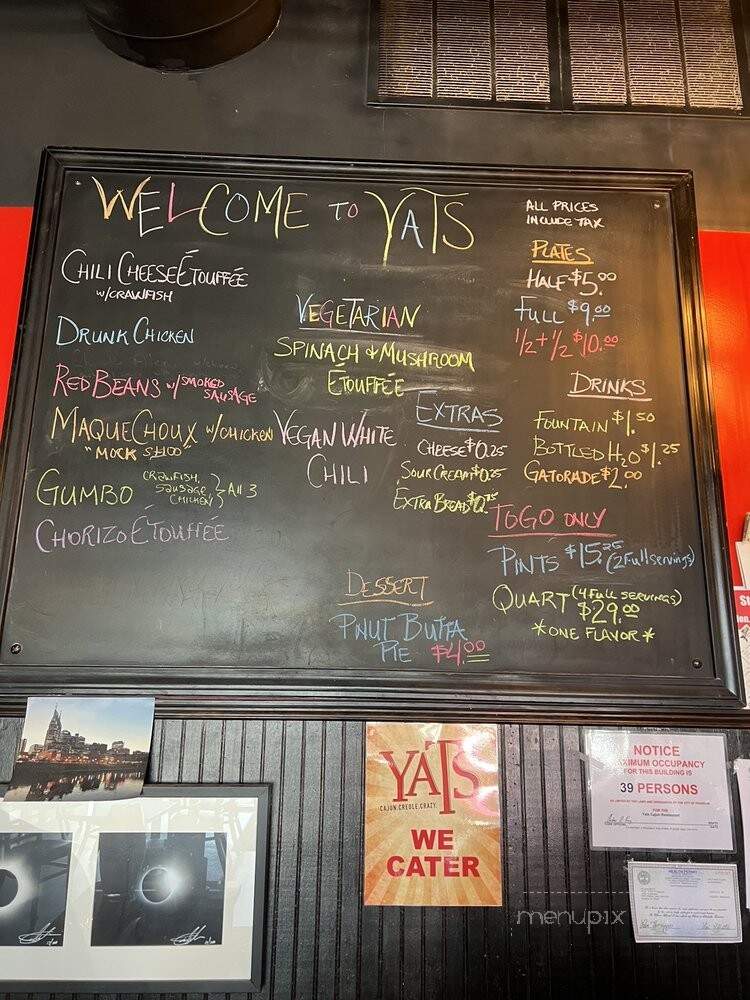 WELCOME TO YATS
ALL PRICES
INCLUDE TAX
CHILI CHEESE ÉTOUFFÉE
W/CRAWFISH
DRUNK CHICKEN
RED BEANS W/ SMOKED
SAUSAGE
MAQUE CHOUX W/CHICKEN
GUMBO CRAWFISH,
SAUSAGE,
CHICKEN } All 3
CHORIZO ÉTOUFFÉE
VEGETARIAN
SPINACH & MUSHROOM
ÉTOUFFÉE
VEGAN WHITE
CHILI
EXTRAS
CHEESE $0.25
SOUR CREAM $0.25
EXTRA BREAD
DESSERT
PNUT BUTTA
PIE $4.00
PLATES
HALF $5.00
FULL $9.00
1/2 + 1/2 $10.00
DRINKS
FOUNTAIN $1.50
BOTTLED H2O $1.25
GATORADE $2.00
TOGO ONLY
PINTS $15.25 (2 Full servings)
QUART (4 FULL SERVINGS)
$29.00
*ONE FLAVOR*
YATS
CAJUN.CREOLE.CRAZY.
WE
CATER
NOTICE
MAXIMUM OCCUPANCY
FOR THIS BUILDING IS
39 PERSONS
FOR THE
Yats Cajun Restaurant
HEALTH PERMIT
menupix